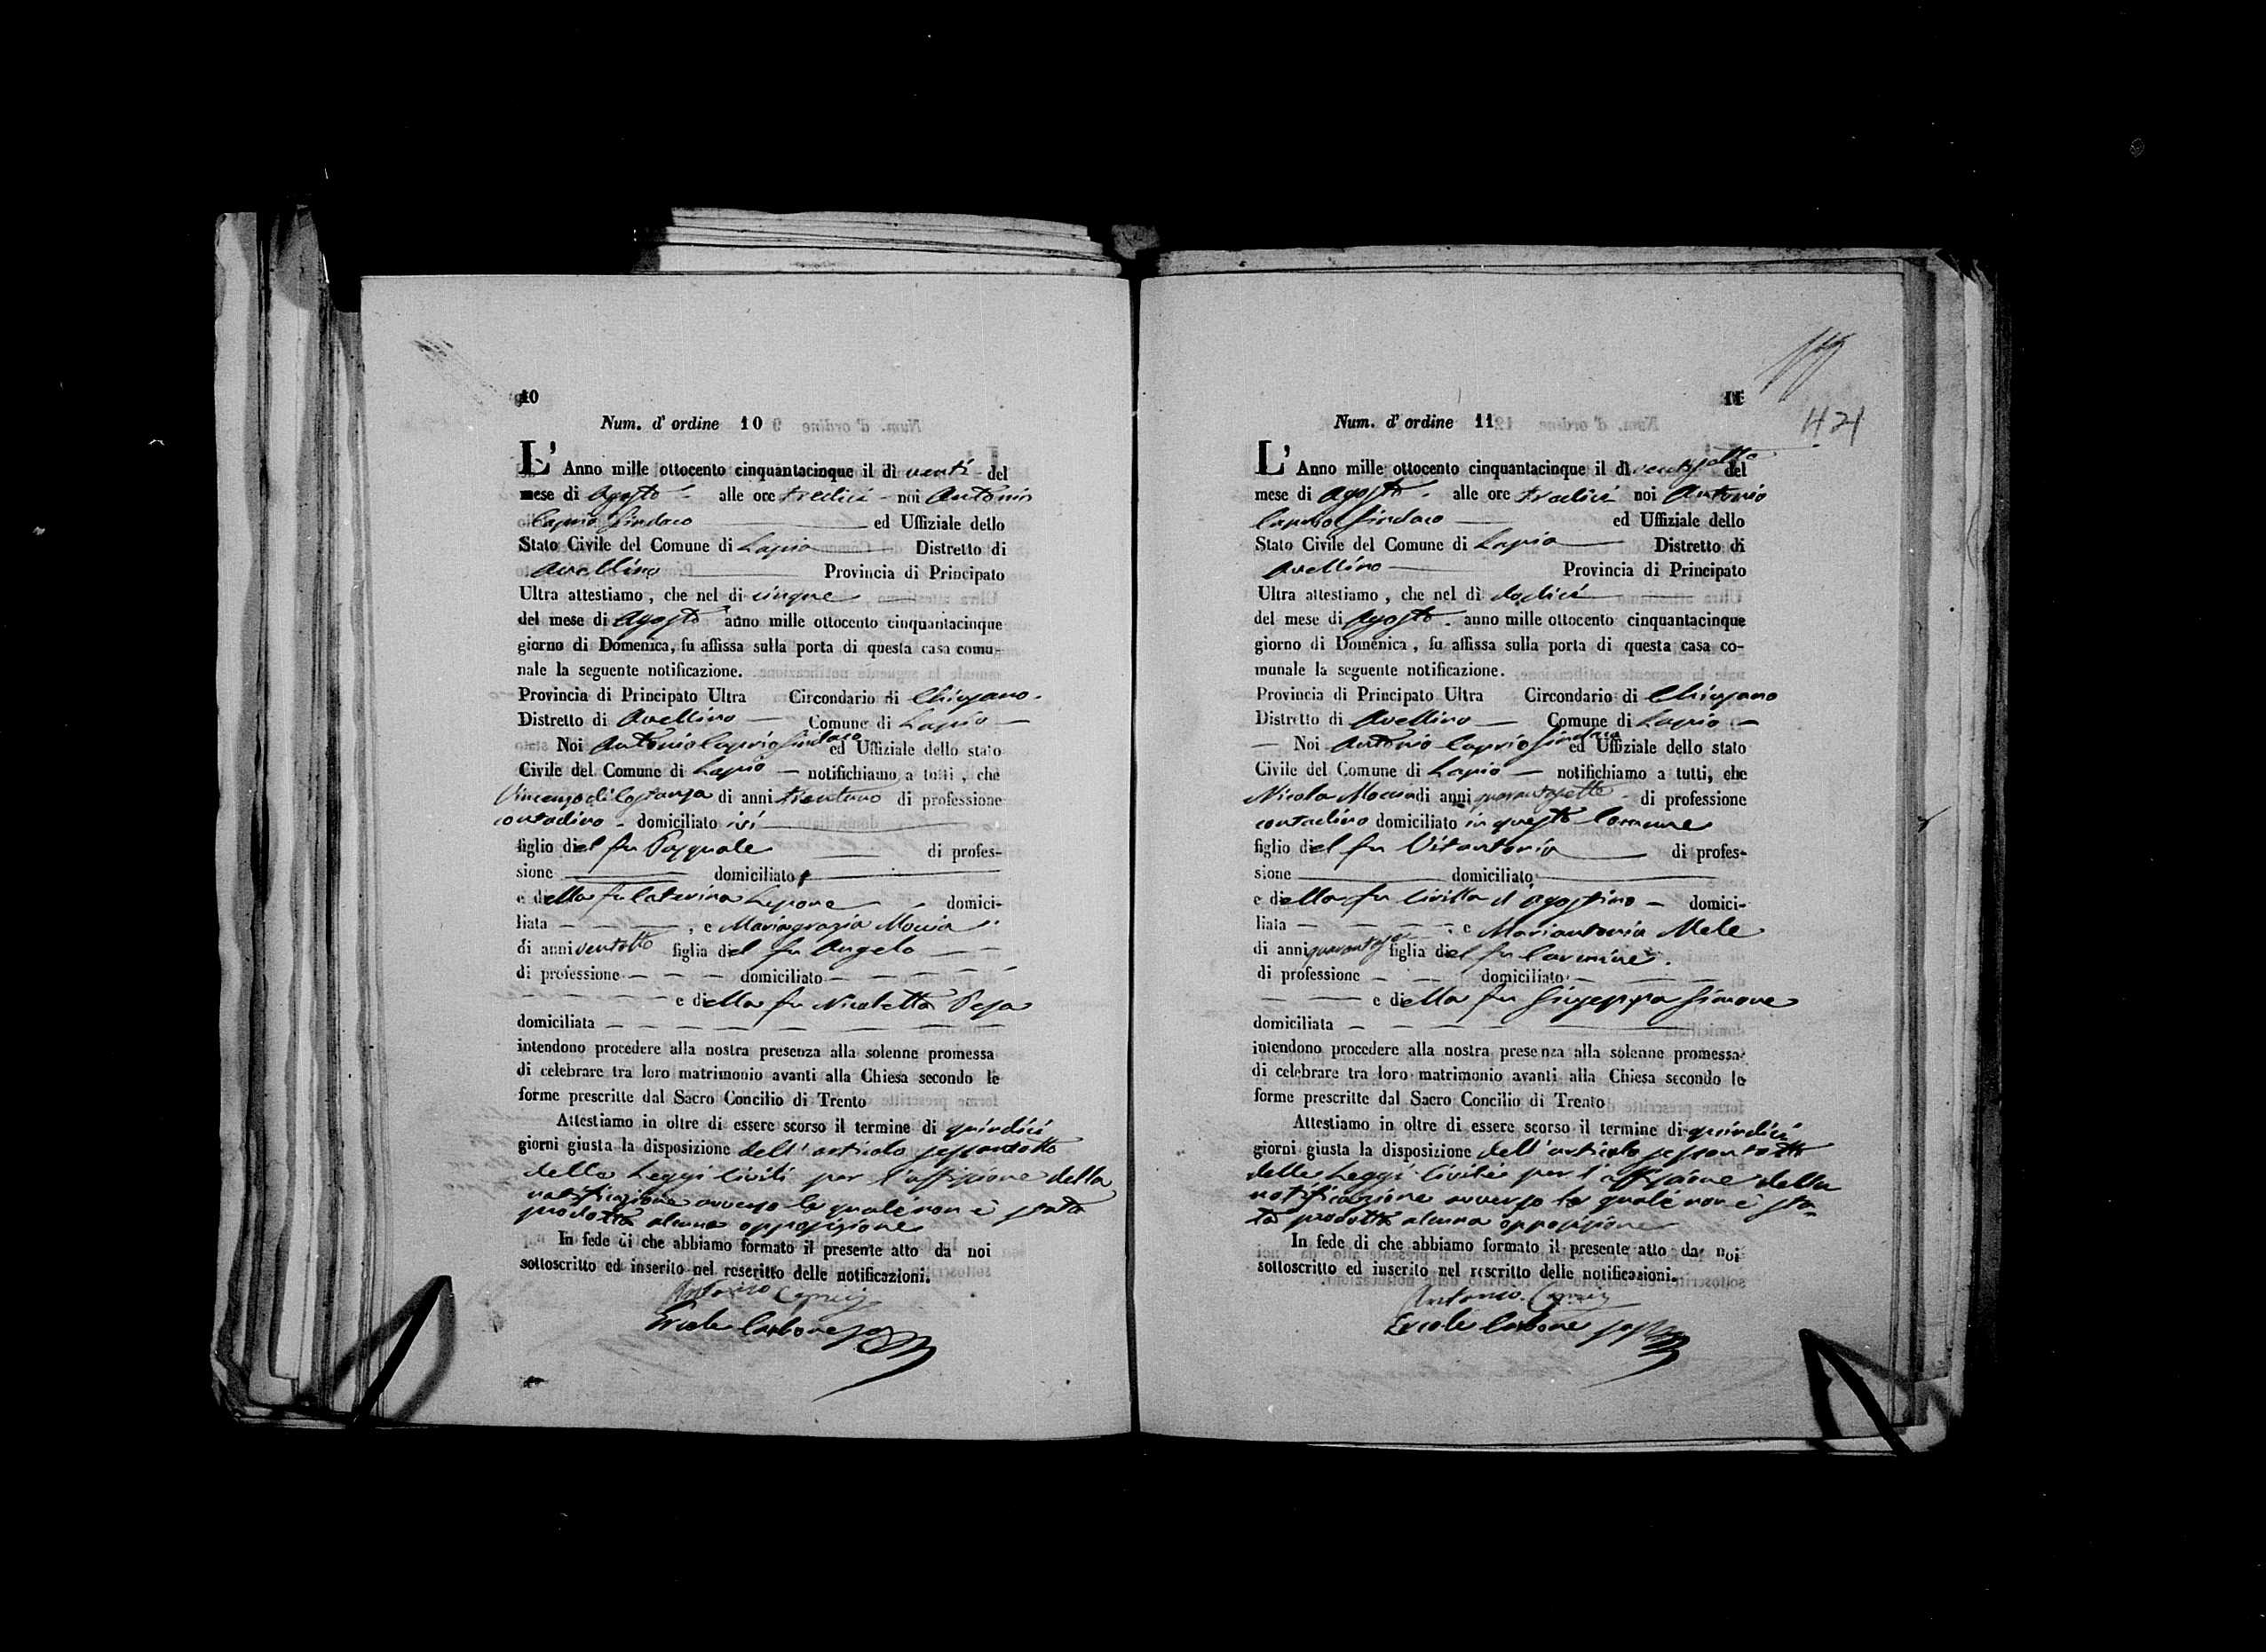 10
Num. d' ordine 10
L' Anno mille ottocento cinquantacinque il di venti del
mese di Agosto alle ore tredici noi Antonio
Caprio Sindaco ed Uffiziale dello
Stato Civile del Comune di Lapio Distretto di
Avellino Provincia di Principato
Ultra attestiamo, che nel di cinque
del mese di Agosto anno mille ottocento cinquantacinque
giorno di Domenica, fu affissa sulla porta di questa casa comu-
nale la seguente notificazione.
Provincia di Principato Ultra Circondario di Chiusano
Distretto di Avellino Comune di Lapio
Noi Antonio Caprio Sindaco ed Uffiziale dello stato
Civile del Comune di Lapio notifichiamo a tutti, che
Vincenzo di Costanza di anni trentuno di professione
contadino domiciliato ivi
figlio del fu Pasquale di profes-
sione domiciliato
e della fu Caterina Lepore domici-
liata , e Mariagrazia Moccia
di anni ventotto figlia del fu Angelo
di professione domiciliato
e della fu Nicoletta Pesa
domiciliata
intendono procedere alla nostra presenza alla solenne promessa
di celebrare tra loro matrimonio avanti alla Chiesa secondo le
forme prescritte dal Sacro Concilio di Trento
Attestiamo in oltre di essere scorso il termine di quindici
giorni giusta la disposizione dell'articolo sessantotto
delle Leggi Civili per l'affissione della
notificazione avverso la quale non è stata
prodotta alcuna opposizione
In fede di che abbiamo formato il presente atto da noi
sottoscritto ed inserito nel rescritto delle notificazioni.
Antonio Caprio
Ercole Carbone
11
421
Num. d' ordine 11
L' Anno mille ottocento cinquantacinque il dì ventisette del
mese di Agosto alle ore tredici noi Antonio
Caprio Sindaco ed Uffiziale dello
Stato Civile del Comune di Lapio Distretto di
Avellino Provincia di Principato
Ultra attestiamo, che nel dì dodici
del mese di Agosto anno mille ottocento cinquantacinque
giorno di Domenica, fu affissa sulla porta di questa casa co-
munale la seguente notificazione.
Provincia di Principato Ultra Circondario di Chiusano
Distretto di Avellino Comune di Lapio
Noi Antonio Caprio Sindaco ed Uffiziale dello stato
Civile del Comune di Lapio notifichiamo a tutti, che
Nicola Moccia di anni quarantasette di professione
contadino domiciliato in questo Comune
figlio del fu Vitantonio di profes-
sione domiciliato
e della fu Civilla d'Agostino domici-
liata , e Mariantonia Mele
di anni figlia del fu Carmine
di professione domiciliato
e della fu Giuseppa Simone
domiciliata
intendono procedere alla nostra presenza alla solenne promessa
di celebrare tra loro matrimonio avanti alla Chiesa secondo le
forme prescritte dal Sacro Concilio di Trento
Attestiamo in oltre di essere scorso il termine di quindici
giorni giusta la disposizione dell'articolo sessantotto
delle Leggi Civili per l'affissione della
notificazione avverso la quale non è sta-
ta prodotta alcuna opposizione
In fede di che abbiamo formato il presente atto da noi
sottoscritto ed inserito nel rescritto delle notificazioni.
Antonio Caprio
Ercole Carbone